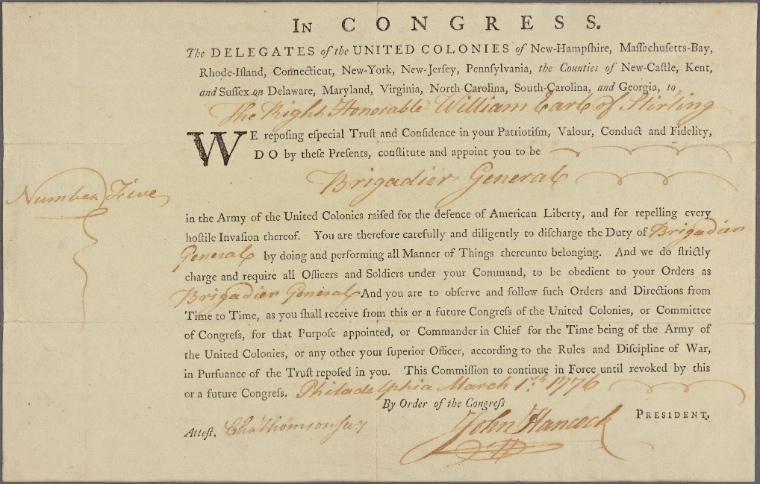 IN CONGRESS.
The DELEGATES of the UNITED COLONIES of New-Hampſhire, Maſſachuſetts-Bay,
Rhode-Iſland, Connecticut, New-York, New-Jerſey, Pennſylvania, the Counties of New-Caſtle, Kent,
and Suſſex on Delaware, Maryland, Virginia, North-Carolina, South-Carolina, and Georgia, to
The Right Honorable William Earl of Stirling
WE repoſing eſpecial Truſt and Confidence in your Patriotiſm, Valour, Conduct and Fidelity,
DO by theſe Preſents, conſtitute and appoint you to be
Brigadier General
Number Five
in the Army of the United Colonies raiſed for the defence of American Liberty, and for repelling every
hoſtile Invaſion thereof. You are therefore carefully and diligently to diſcharge the Duty of Brigadier
General by doing and performing all Manner of Things thereunto belonging. And we do ſtrictly
charge and require all Officers and Soldiers under your Command, to be obedient to your Orders as
Brigadier General And you are to obſerve and follow ſuch Orders and Directions from
Time to Time, as you ſhall receive from this or a future Congreſs of the United Colonies, or Committee
of Congreſs, for that Purpoſe appointed, or Commander in Chief for the Time being of the Army of
the United Colonies, or any other your ſuperior Officer, according to the Rules and Diſcipline of War,
in Purſuance of the Truſt repoſed in you. This Commiſſion to continue in Force until revoked by this
or a future Congreſs. Philadelphia March 1st 1776
By Order of the Congreſs
John Hancock PRESIDENT.
Atteſt. Cha Thomson Secy